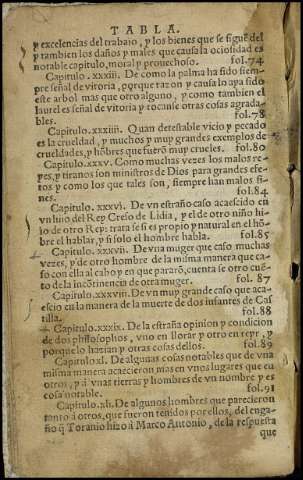 TABLA.
y excelencias del trabajo, y los bienes que se siguē del
y tambien los daños y males que causa la ociosidad es
notable capitulo, moral y prouechoso. fol.74
Capitulo. xxxiij. De como la palma ha sido siem-
pre señal de vitoria, porque razon y causa lo aya sido
este arbol mas que otro alguno, y como tambien el
laurel es señal de vitoria y tocanse otras cosas agrada-
bles. fol.78
Capitulo. xxxiiij. Quan detestable vicio y pecado
es la crueldad, y muchos y muy grandes exemplos de
crueldades, y hōbres que fuerō muy crueles. fol. 80
Capitulo. xxxv. Como muchas vezes los malos re-
yes, y tiranos son ministros de Dios para grandes efe-
tos y como los que tales son, siempre han malos fi-
nes. fol.84
Capitulo. xxxvj. De vn estraño caso acaescido en
vn hijo del Rey Creso de Lidia, y el de otro niño hi-
jo de otro Rey: trata se si es propio y natural en el hō-
bre el hablar, y si solo el hombre habla. fol.85
Capitulo. xxxvij. De vna muger que caso muchas
vezes, y de otro hombre de la misma manera que ca-
so con ella al cabo y en que pararō, cuenta se otro cuē-
to de la incōtinencia de otra muger. fol. 87
Capitulo. xxxviij. De vn muy grande caso que aca-
escio en la manera de la muerte de dos infantes de Cas
tilla. fol.88
Capitulo. xxxix. De la estraña opinion y condicion
de dos philosophos, vno en llorar y otro en reyr, y
porque lo hazian y otras cosas dellos. fol.89
Capitulo. xl. De algunas cosas notables que de vna
misma manera acaecieron mas en vnos lugares que en
otros, y a vnas tierras y hombres de vn nombre y es
cosa notable. fol.91
Capitulo. xlj. De algunos hombres que parecieron
tanto á otros, que fueron tenidos por ellos, del enga-
ño q̄ Toranio hizo á Marco Antonio, de la respuesta
que